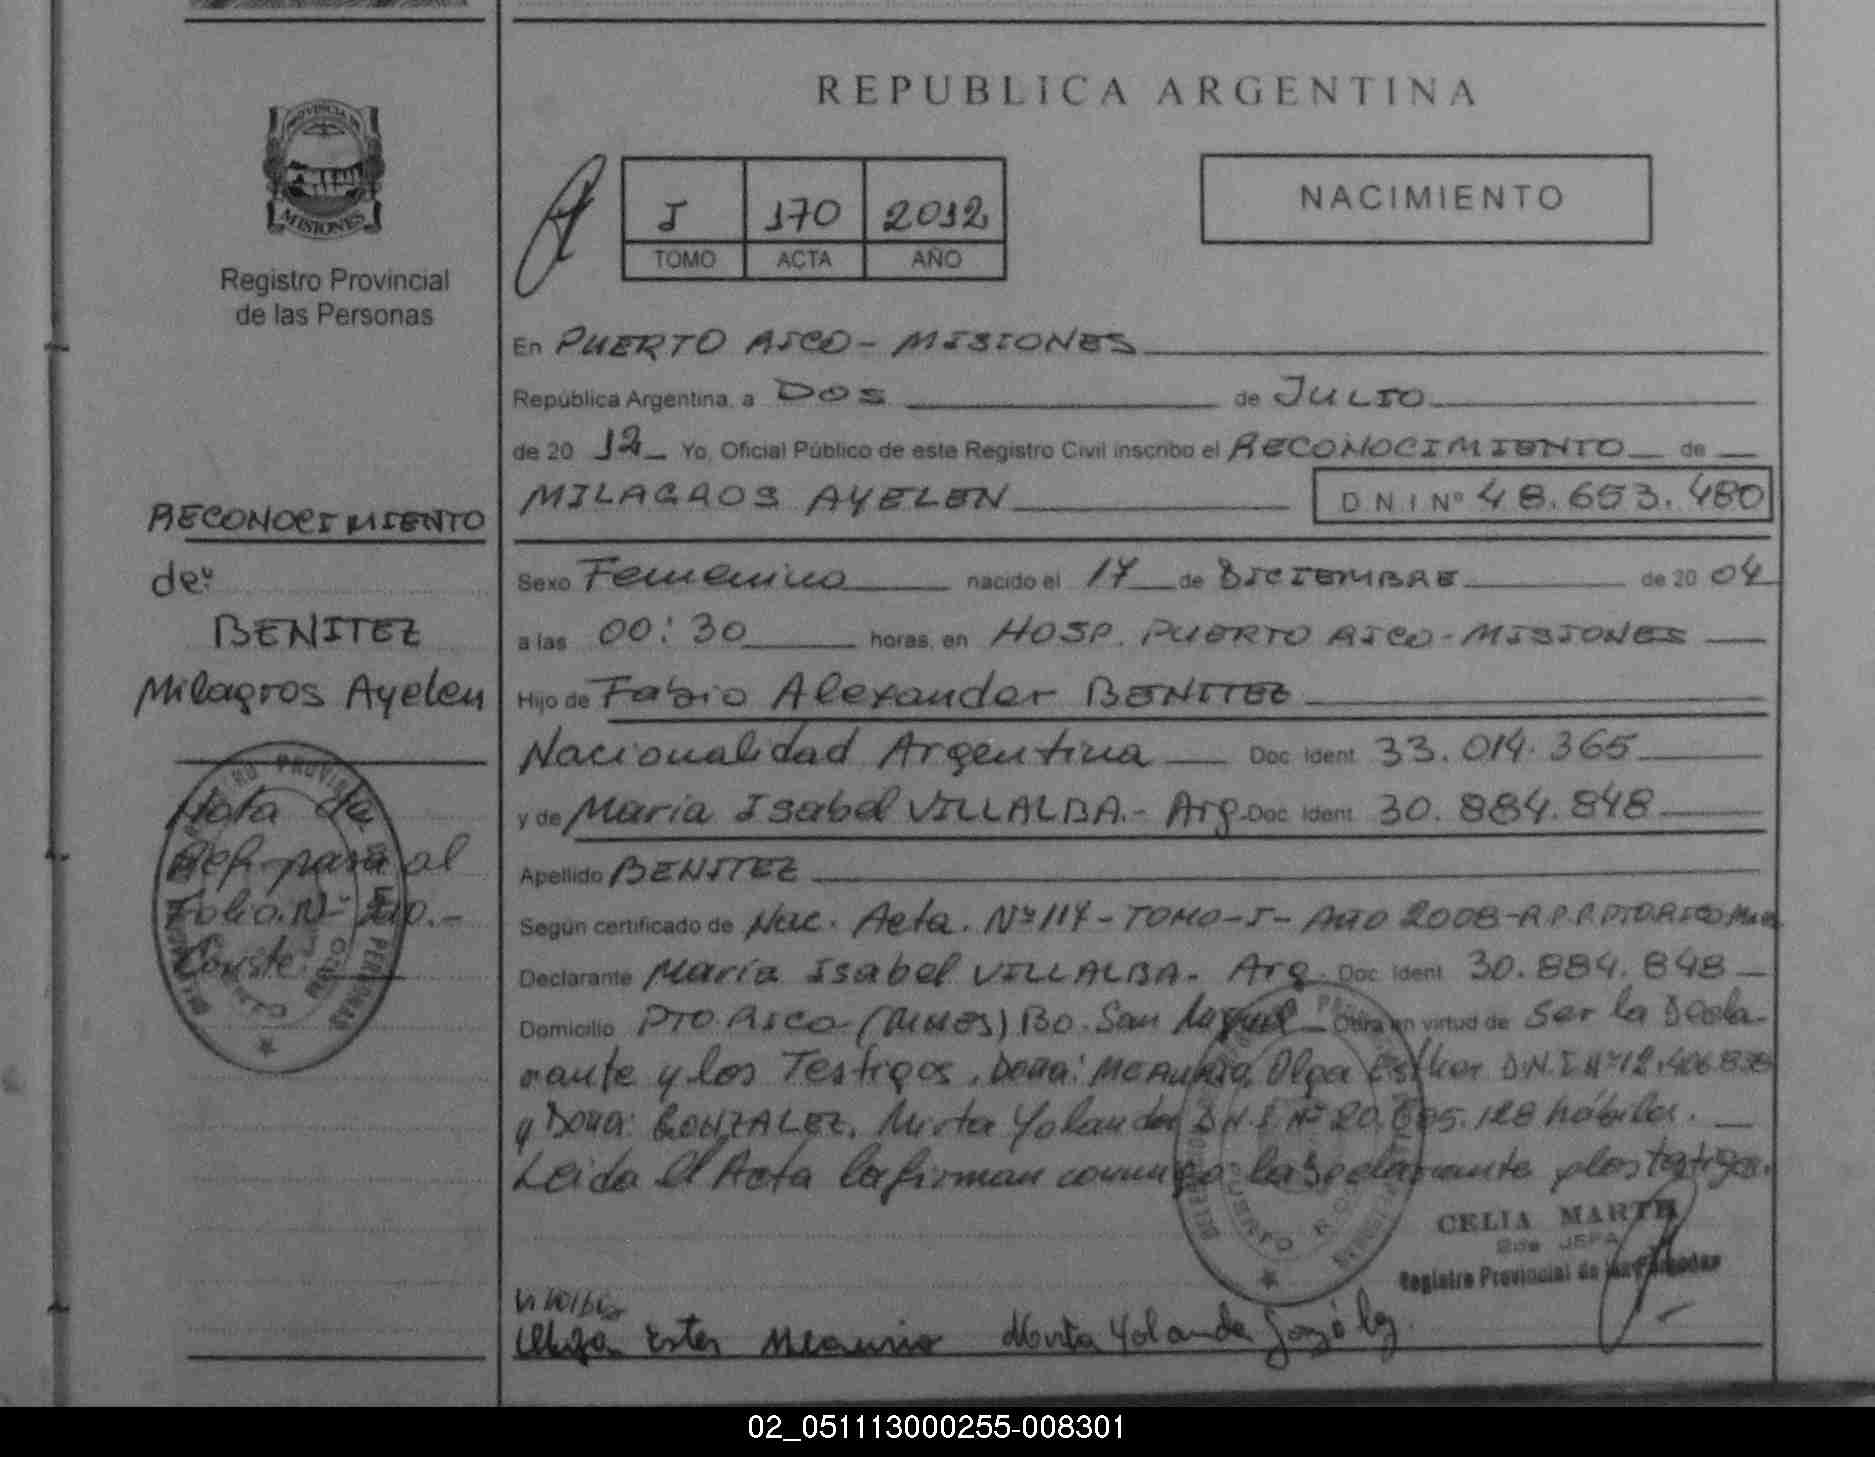 REPUBLICA ARGENTINA
PROVINCIA DE
MISIONES
Registro Provincial
de las Personas
J 170 2012
TOMO ACTA AÑO
NACIMIENTO
En PUERTO RICO - MISIONES
República Argentina, a DOS de JULIO
de 20 12 Yo, Oficial Público de este Registro Civil inscribo el RECONOCIMIENTO de
MILAGROS AYELEN D N I Nº 48.653.480
RECONOCIMIENTO
de:
BENITEZ
Milagros Ayelen
Sexo Femenino nacido el 17 de DICIEMBRE de 20 04
a las 00:30 horas, en HOSP. PUERTO RICO - MISIONES
Hijo de Fabio Alexander BENITEZ
Nacionalidad Argentina Doc Ident 33.014.365
y de Maria Isabel VILLALBA.- Arg. Doc Ident 30.884.848
Apellido BENITEZ
Nota de
Ref. pasa al
Folio Nº
Conste.
Según certificado de Nac. Acta. Nº 117 - TOMO - I - AÑO 2008 - R.P.P. PTO RICO
Declarante Maria Isabel VILLALBA - Arg. Doc Ident 30.884.848
Domicilio PTO. RICO - (MNES) Bo. San Miguel Obra en virtud de Ser la Decla-
rante y los Testigos, Doña: Olga Esther D.N.I. Nº 12.406.838
y Doña: GONZALEZ, Mirta Yolanda D.N.I. Nº 20. 128 hábiles.
Leida el Acta la firman conmigo la Declarante y los testigos.
CELIA
JEFA
Registro Provincial de las Personas
Mirta Yolanda
02_051113000255-008301